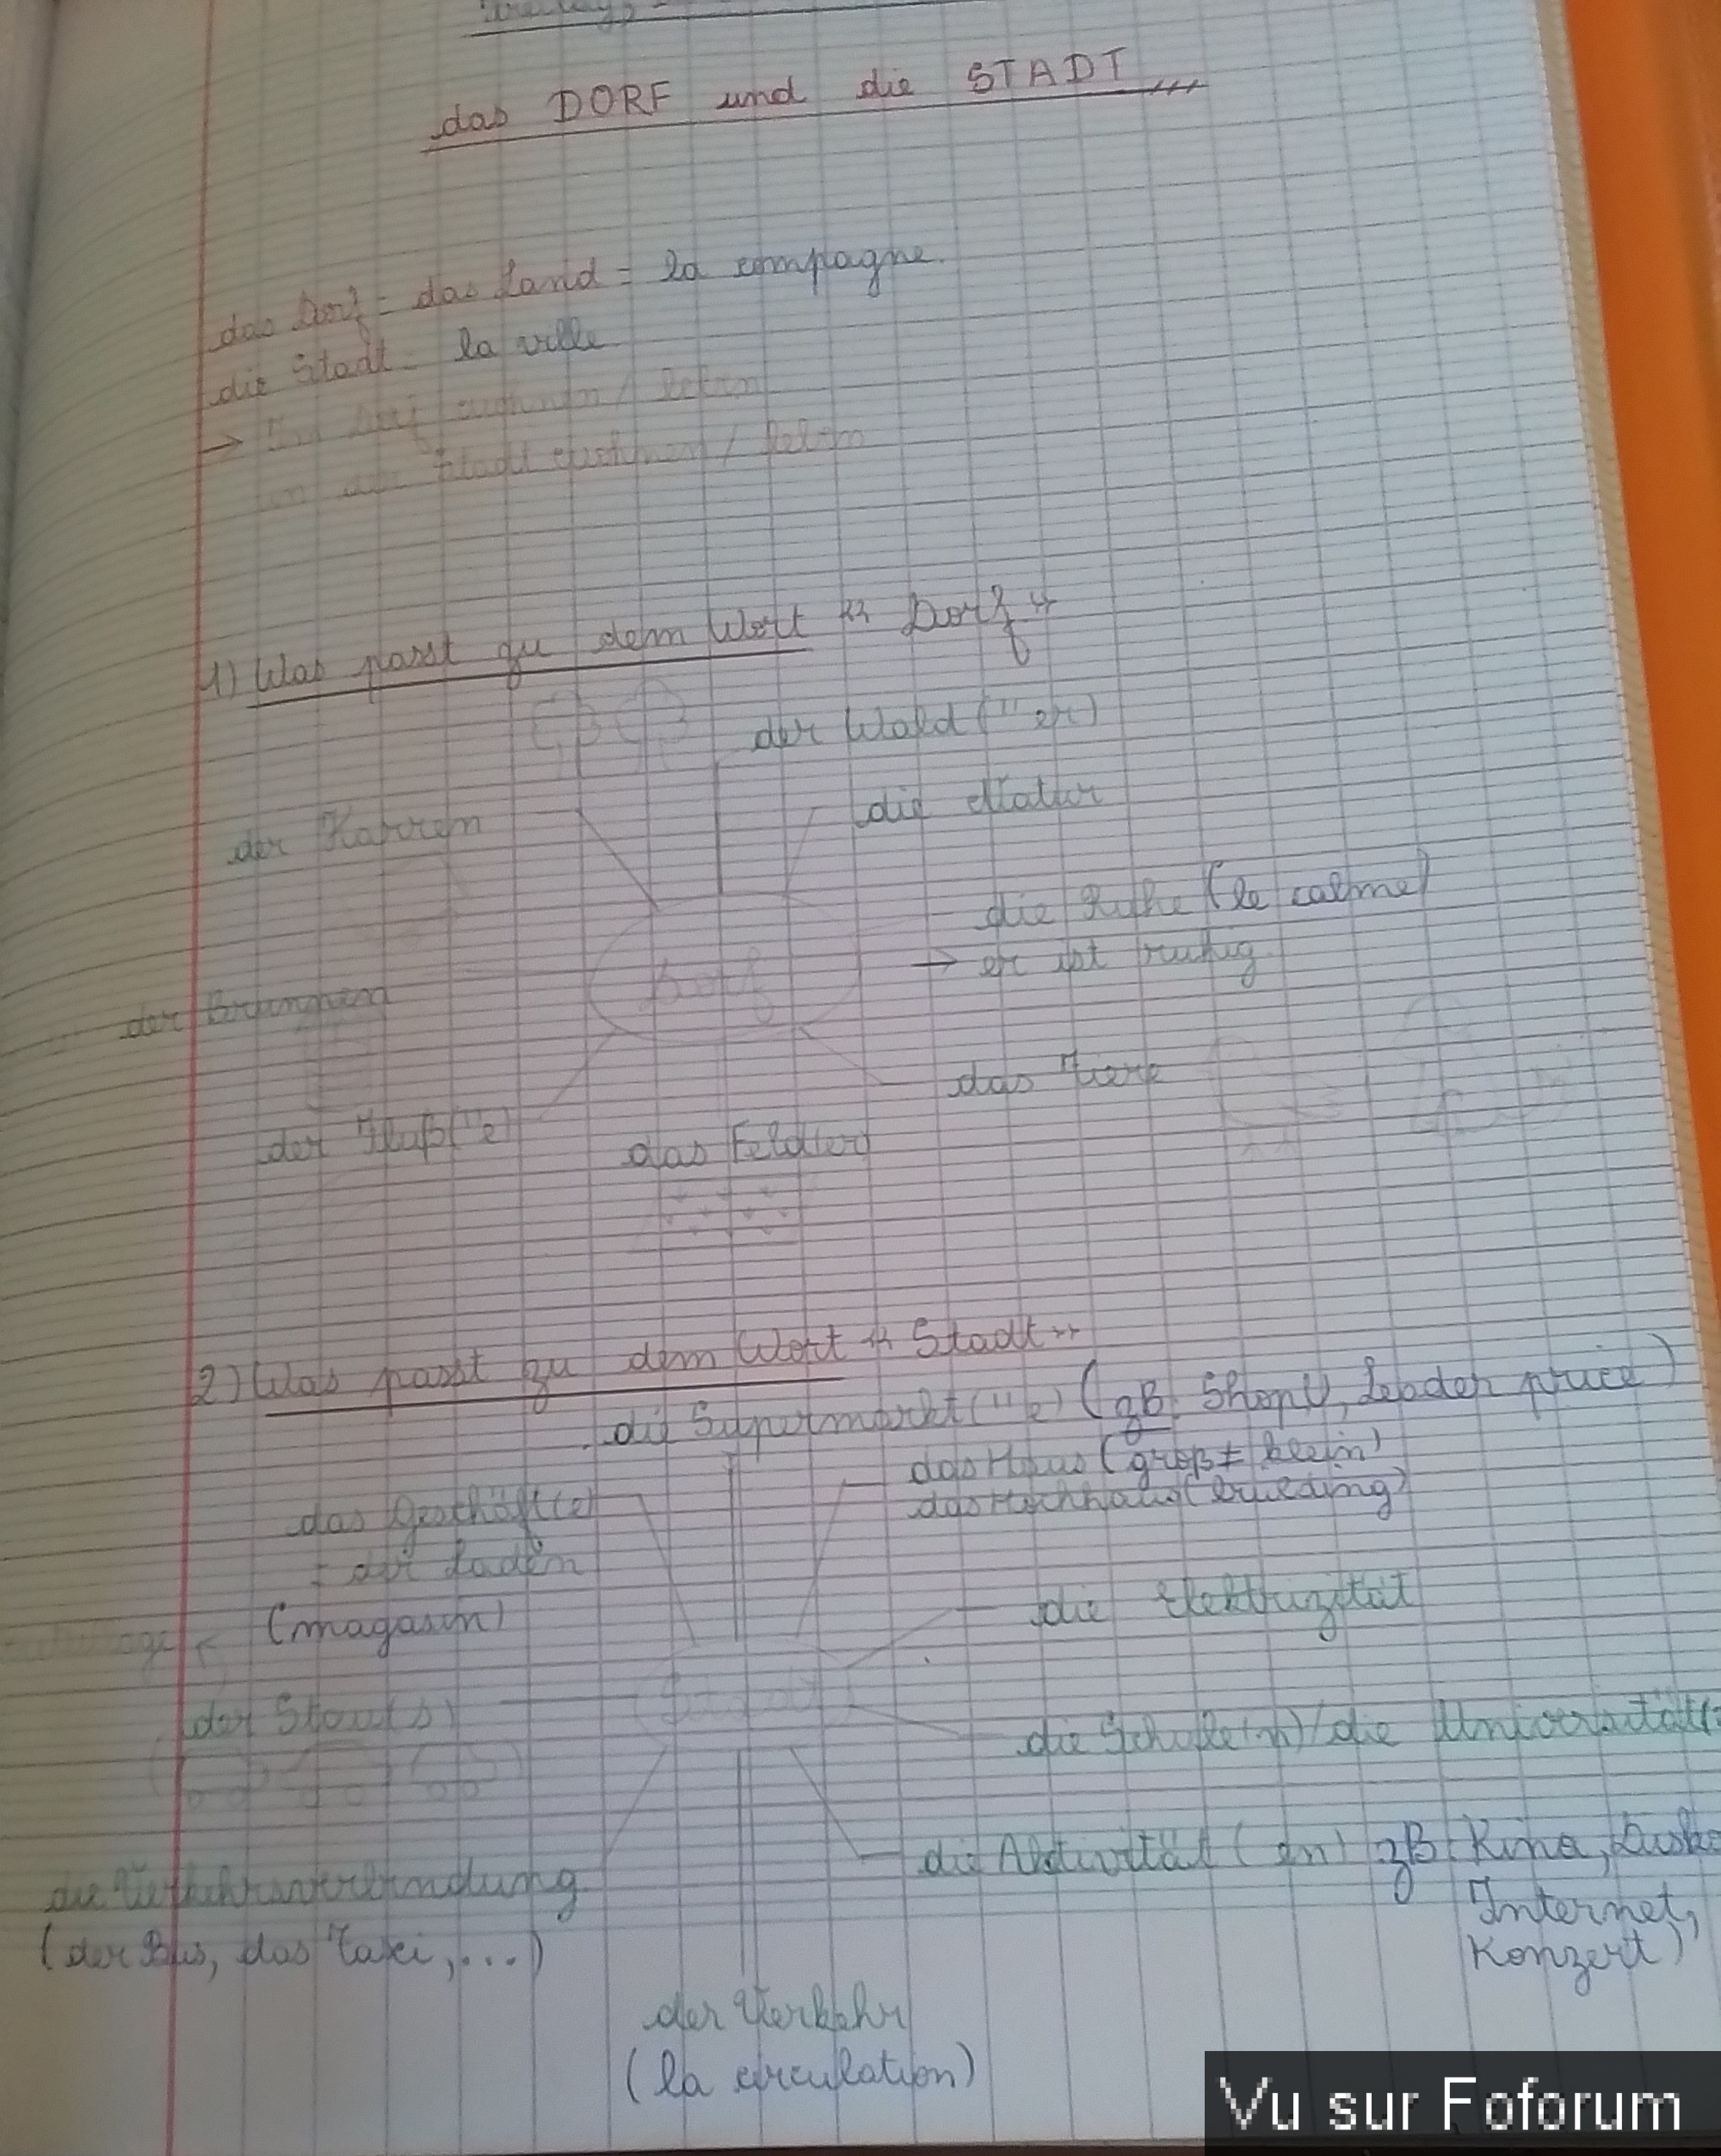 das DORF und die STADT
das Dorf = das Land = la compagne.
die Stadt = la ville
→ Im Dorf wohnen / leben
in der Stadt wohnen / leben
1) Was passt zu dem Wort « Dorf »
der Wald ("er)
der Karren
die Natur
die Ruhe (le calme)
→ er ist ruhig
Dorf
der
das Tiere
der Fluß ("e)
das Feld(er)
2) Was passt zu dem Wort « Stadt »
die Supermarkt ("e) (zB: Shopi, leader price)
das Haus (groß ≠ klein)
das Geschäft(e)
das Hochhaus (building)
= der Laden
(magasin)
die Elektrizität
Stadt
der Stau(s)
die Schule(n) / die Universität(
die Aktivität (en) zB: Kino,
die Verkehrsverbindung
Internet,
(der Bus, das Taxi, ...)
Konzert)
der Verkehr
(la circulation)
Vu sur Foforum